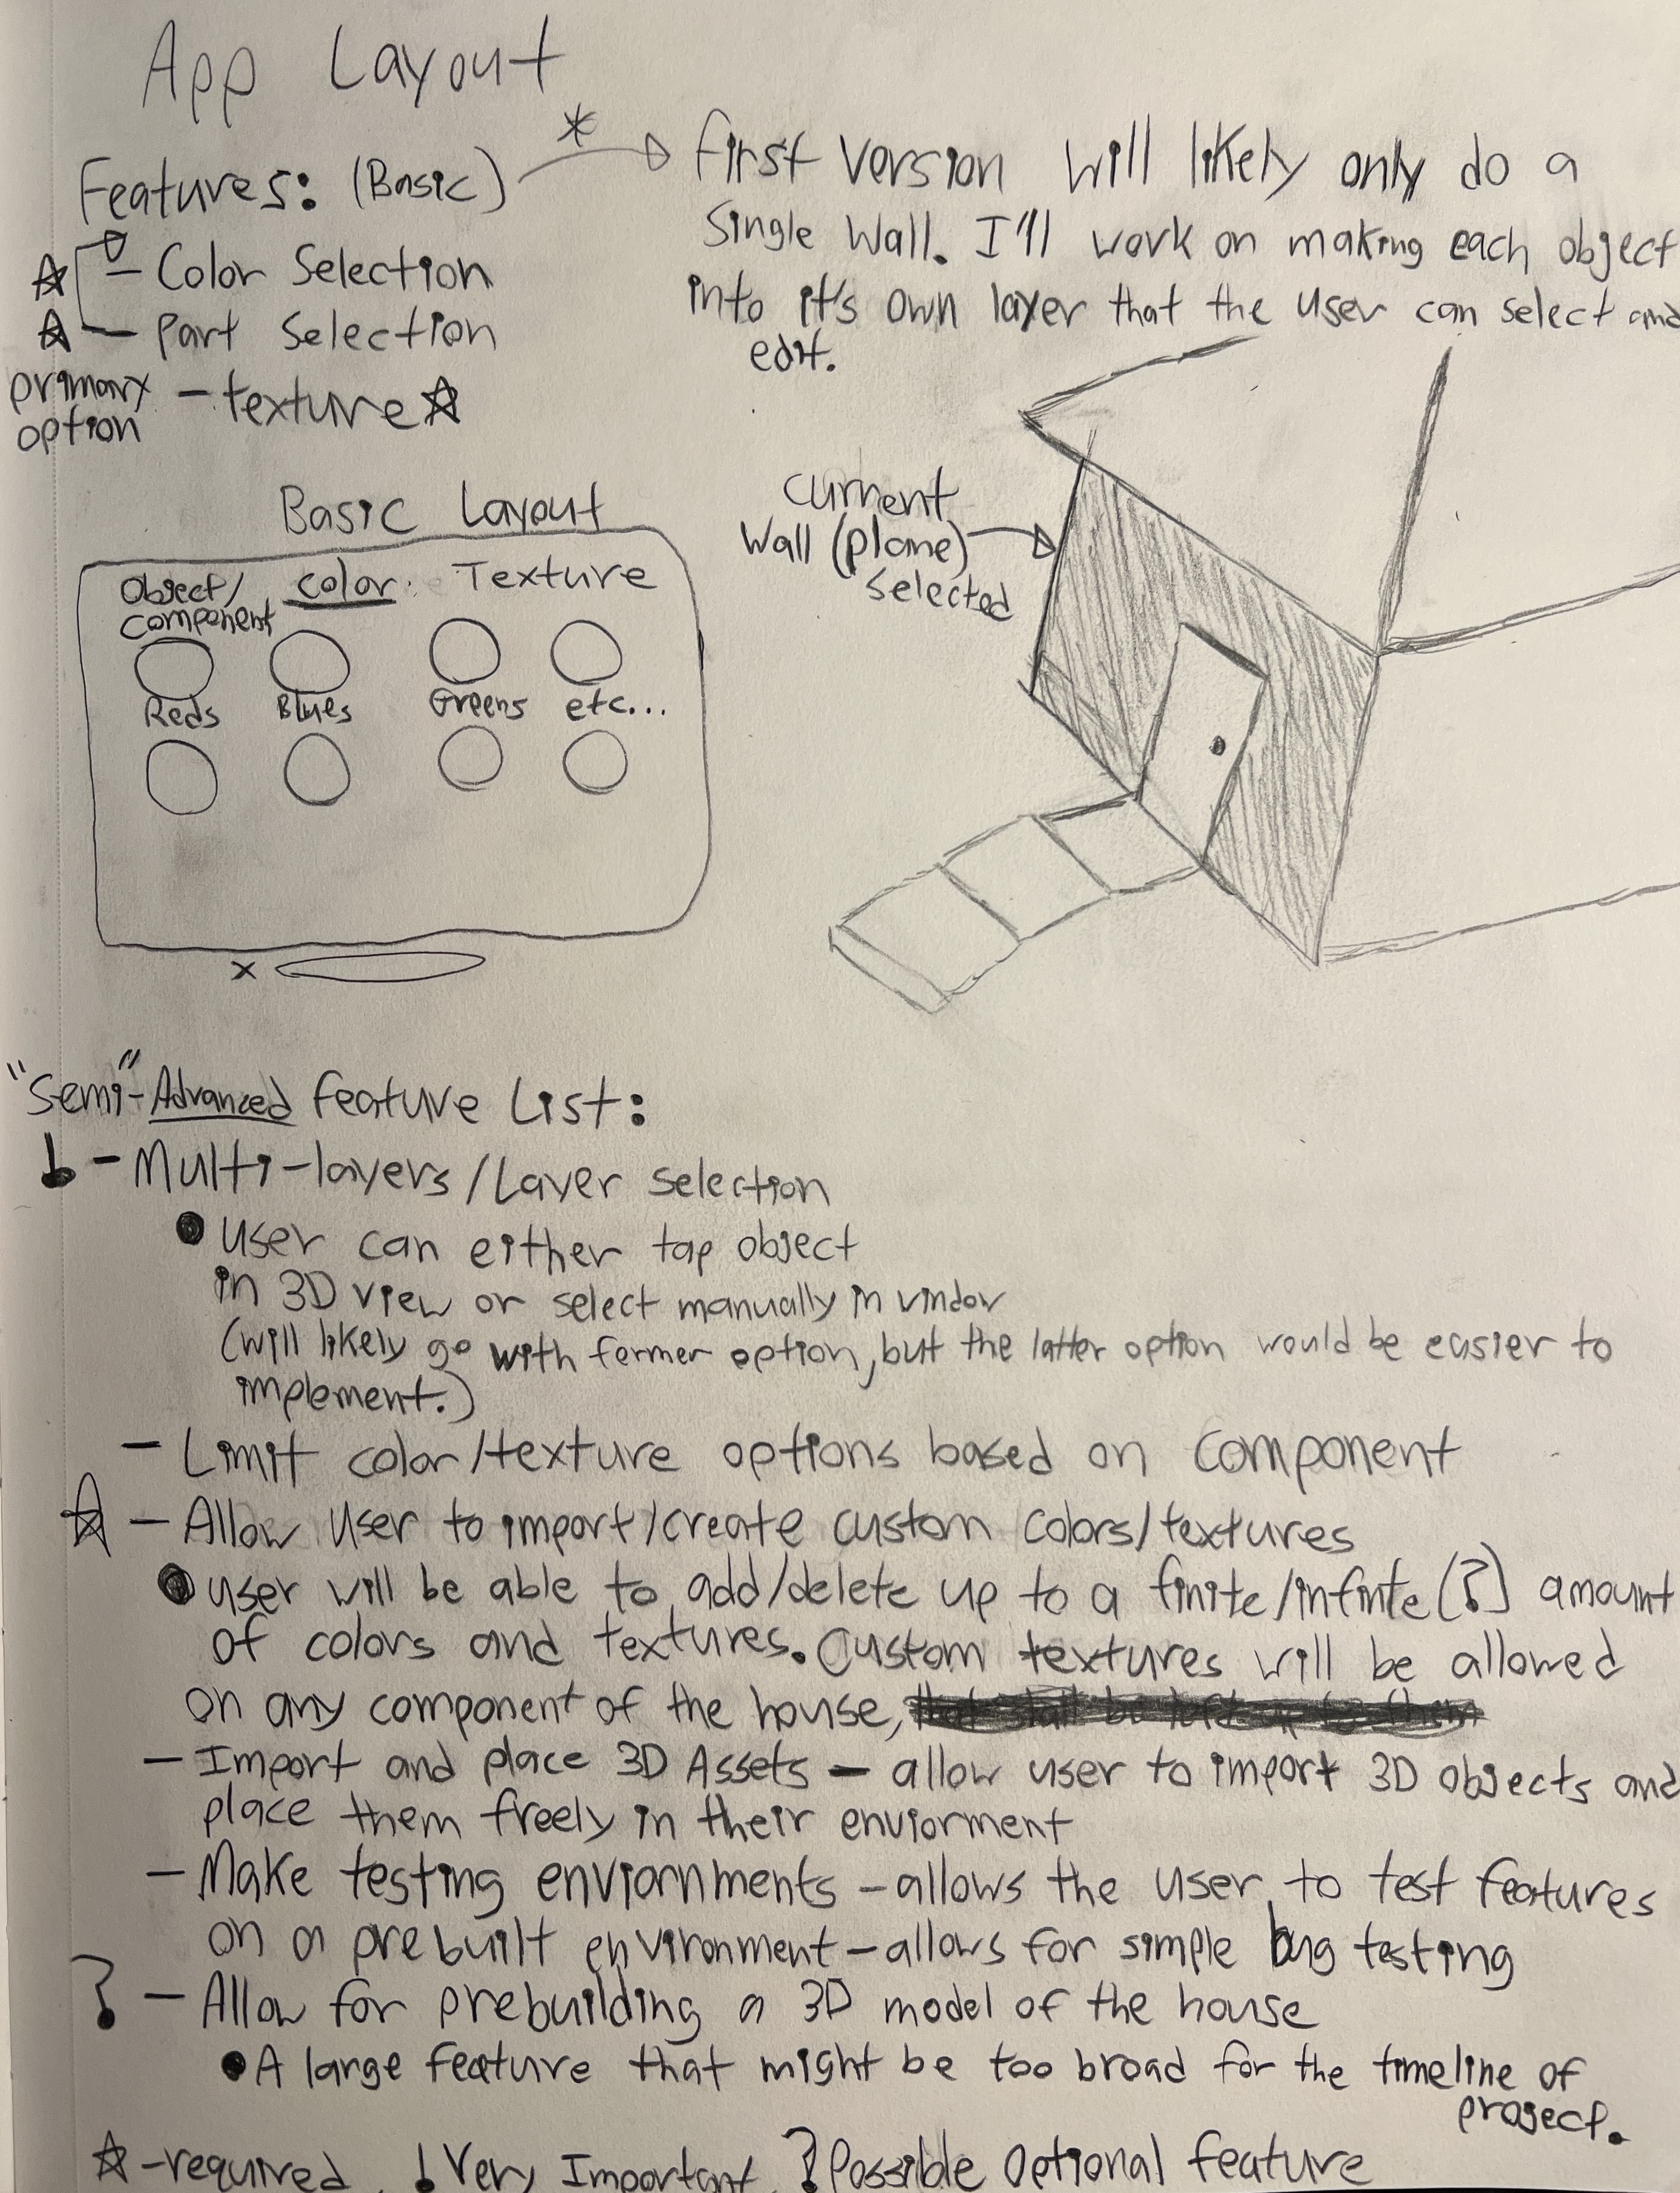 App Layout
Features: (Basic)
- Color Selection
- Part Selection
primary
option
- texture
First version will likely only do a
Single Wall. I'll work on making each object
into it's own layer that the user can select and
edit.
Basic Layout
Object/
component
color:
Texture
Reds
Blues
Greens
etc...
x
Current
Wall (plane)
selected
"Semi"-Advanced Feature List:
! - Multi-layers/Layer selection
• user can either tap object
in 3D view or select manually in window
(will likely go with former option, but the latter option would be easier to
implement.)
- Limit color/texture options based on component
☆ - Allow User to import/create custom colors/textures
• user will be able to add/delete up to a finite/infinite (?) amount
of colors and textures. Custom textures will be allowed
on any component of the house,
- Import and place 3D Assets - allow user to import 3D objects and
place them freely in their enviorment
- Make testing enviornments - allows the user to test features
on a prebuilt environment - allows for simple bug testing
? - Allow for prebuilding a 3D model of the house
• A large feature that might be too broad for the timeline of
project.
☆ - required, ! Very Important, ? Possible Optional feature